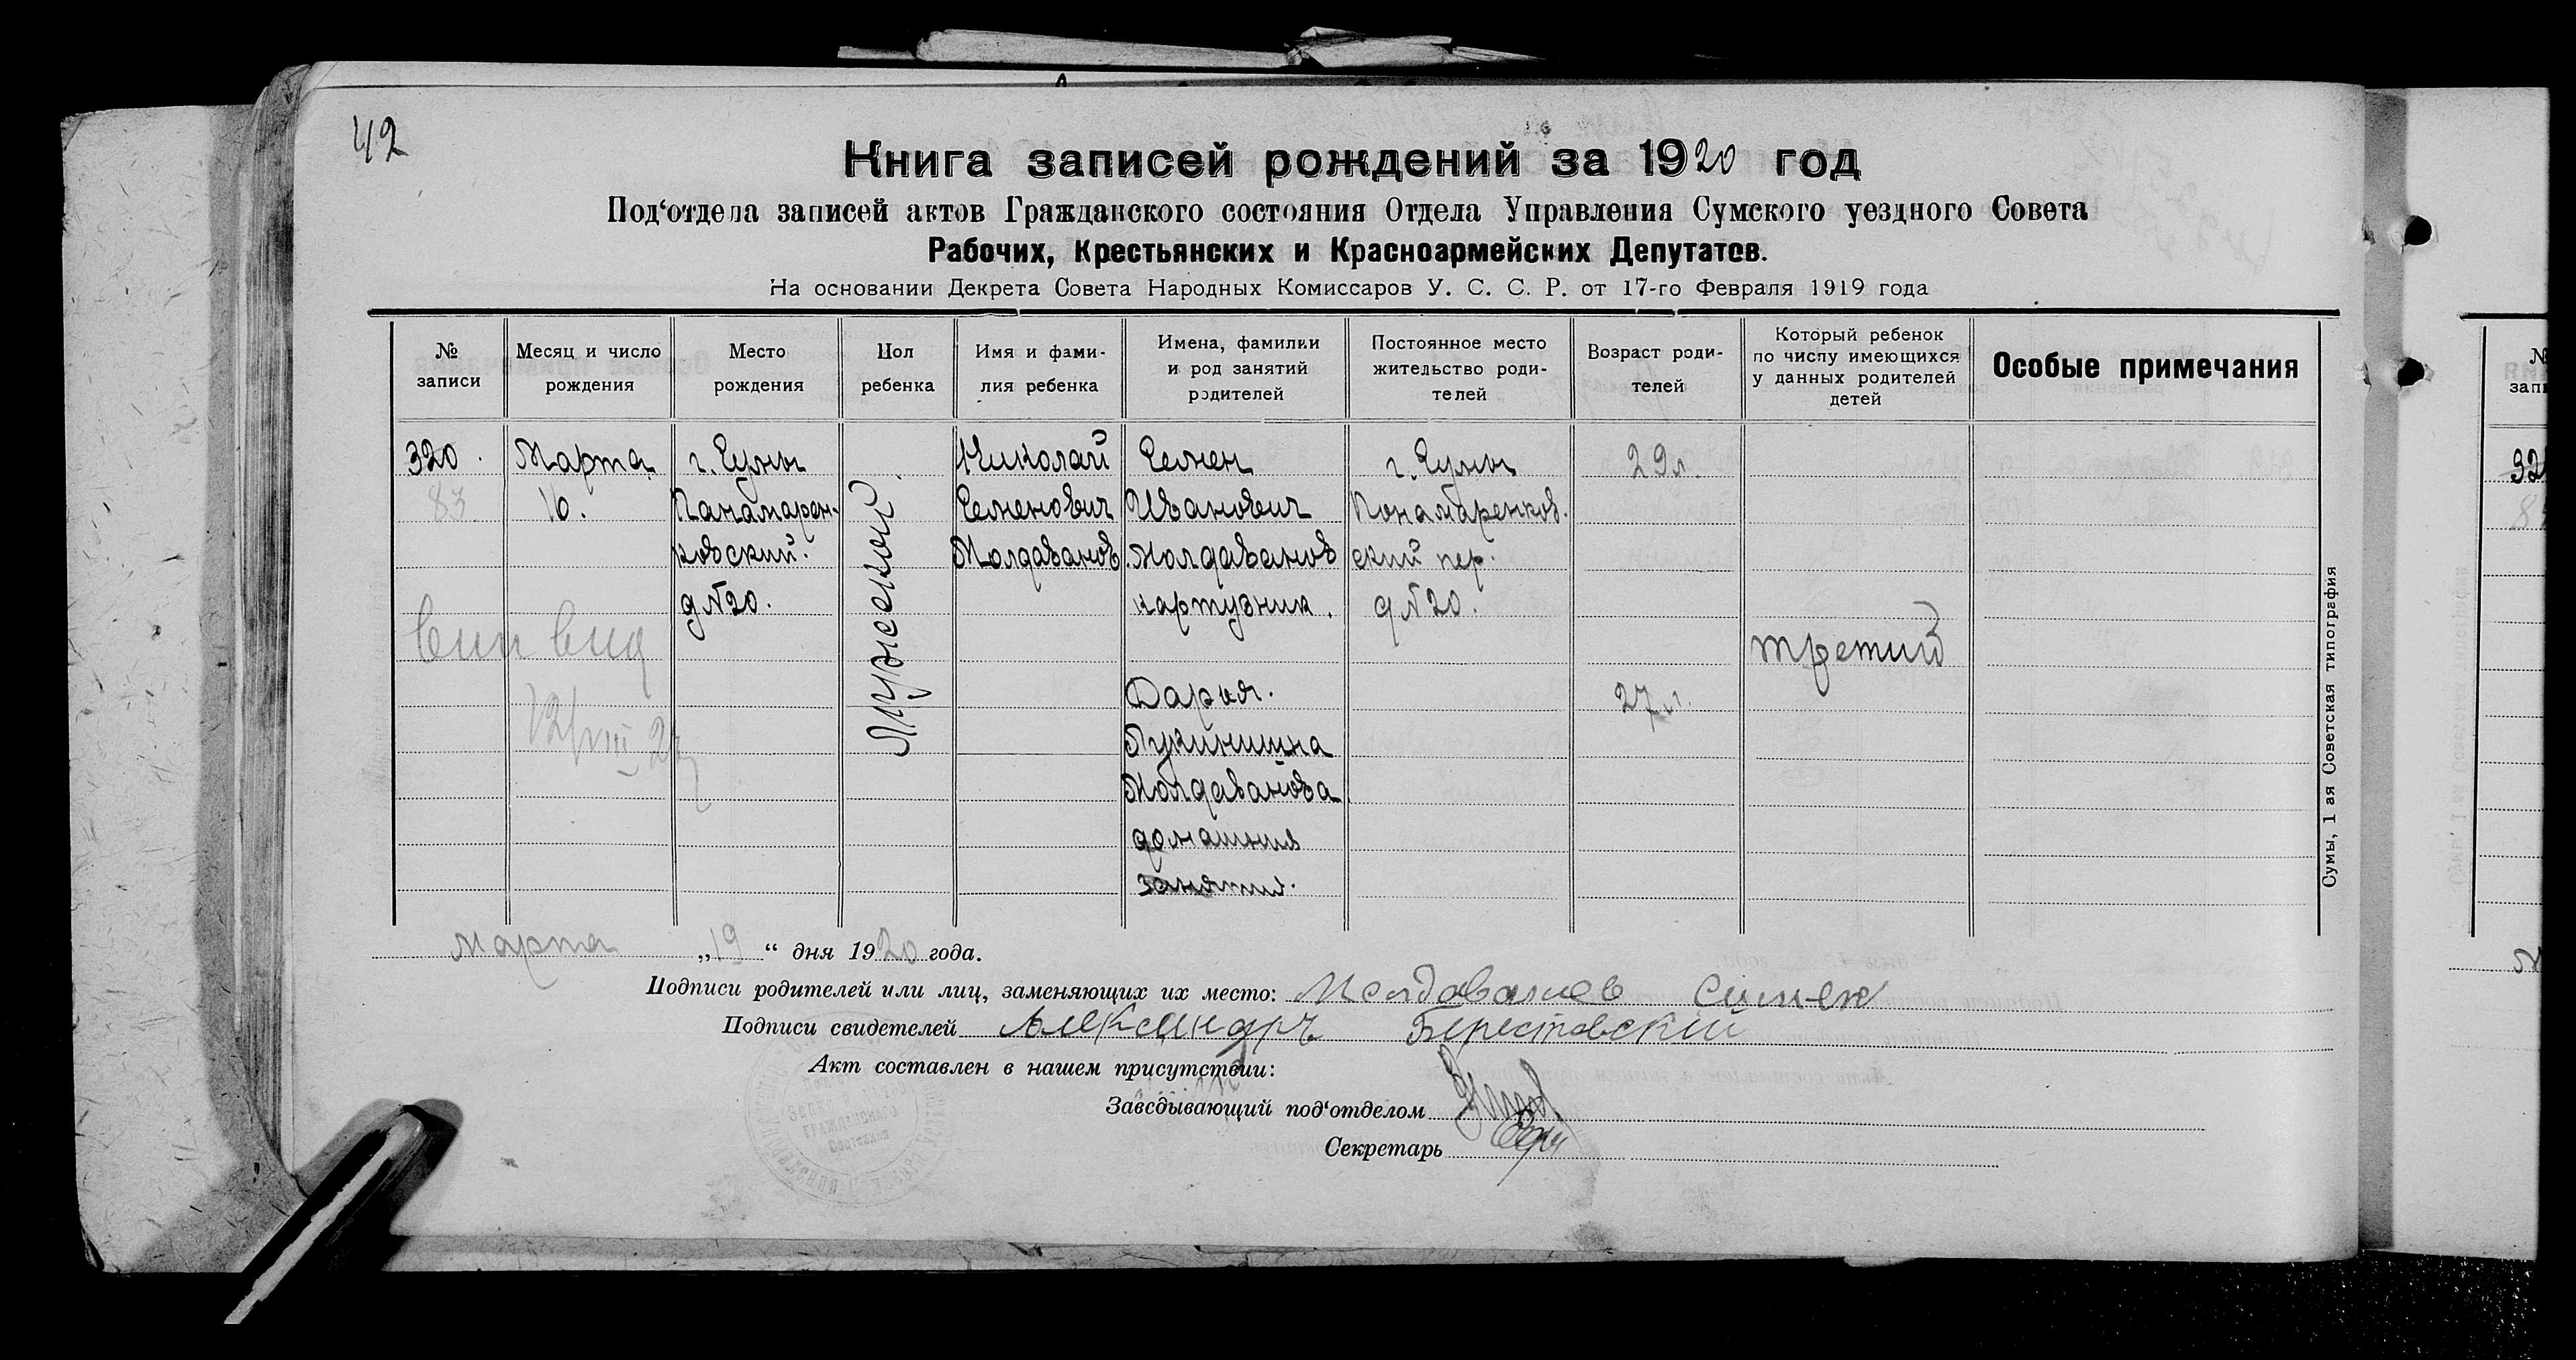 42
Книга записей рождений за 1920 год
Под‘отдела записей актов Гражданского состояния Отдела Управления Сумского уездного Совета
Рабочих, Крестьянских и Красноармейских Депутатов.
На основании Декрета Совета Народных Комиссаров У. С. С. Р. от 17-го Февраля 1919 года
№ записи
Месяц и число рождения
Место рождения
Пол ребенка
Имя и фами-
лия ребенка
Имена, фамилии
и род занятий
родителей
Постоянное место
жительство роди-
телей
Возраст роди-
телей
Который ребенок
по числу имеющихся
у данных родителей
детей
Особые примечания
320.
83
Марта
16.
г. Сумы
Панамарен-
ковский.
д № 20.
Мужеской
Николай
Семенович
Молдаванов
Семен
Иванович
Молдаванов
картузник.
Дарья.
Лукинишна
Молдаванова
домашния
занятия.
г. Сумы
Понамаренков.
ский пер.
д № 20.
29 л.
27 л.
третий
Сумы, 1 ая Советская типография
Марта „19“ дня 1920 года.
Подписи родителей или лиц, заменяющих их место: Молдаванов Симен
Подписи свидетелей Александръ Берестовский
Акт составлен в нашем присутствии:
Заведывающий под‘отделом
Секретарь